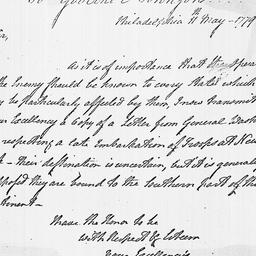 Philadelphia 11 May - 179
Sir,
As it is of importance that the opera
the Enemy should be known to every State which
may be particularly affected by them, I now transmit
your Excellency a Copy of a Letter from General Wash
respecting a late Embarkation of Troops at New
- their destination is uncertain, but it is general
supposed they are bound to the Southern part of the
Continent -
I have the Honor to be
with Respect & Esteem
Your Excellency's